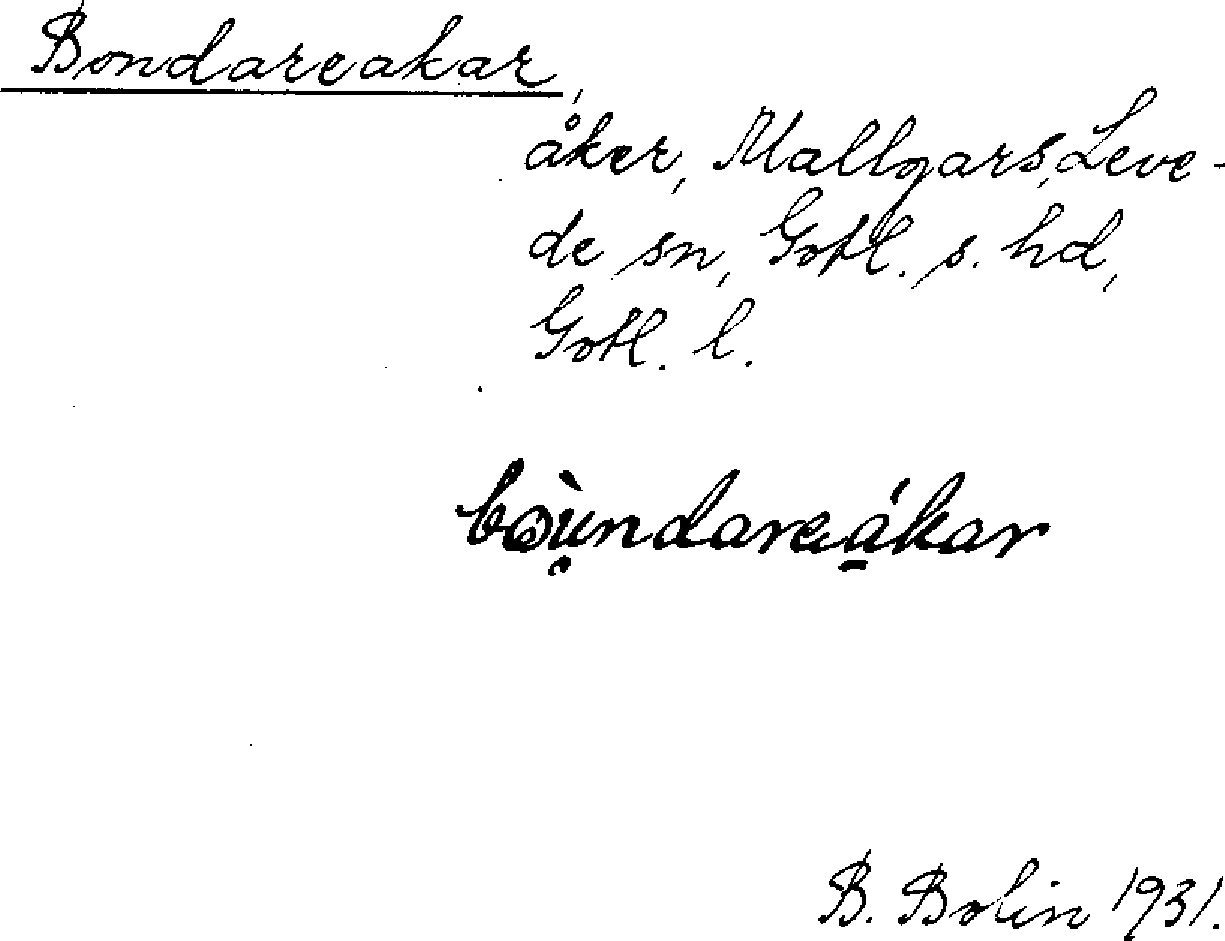 Bondareakar,
åker, Mallgars, Leve-
de sn, Gotl. s. hd,
Gotl. l.
bɷ̀u̥ndareákar
B. Bolin 1931.